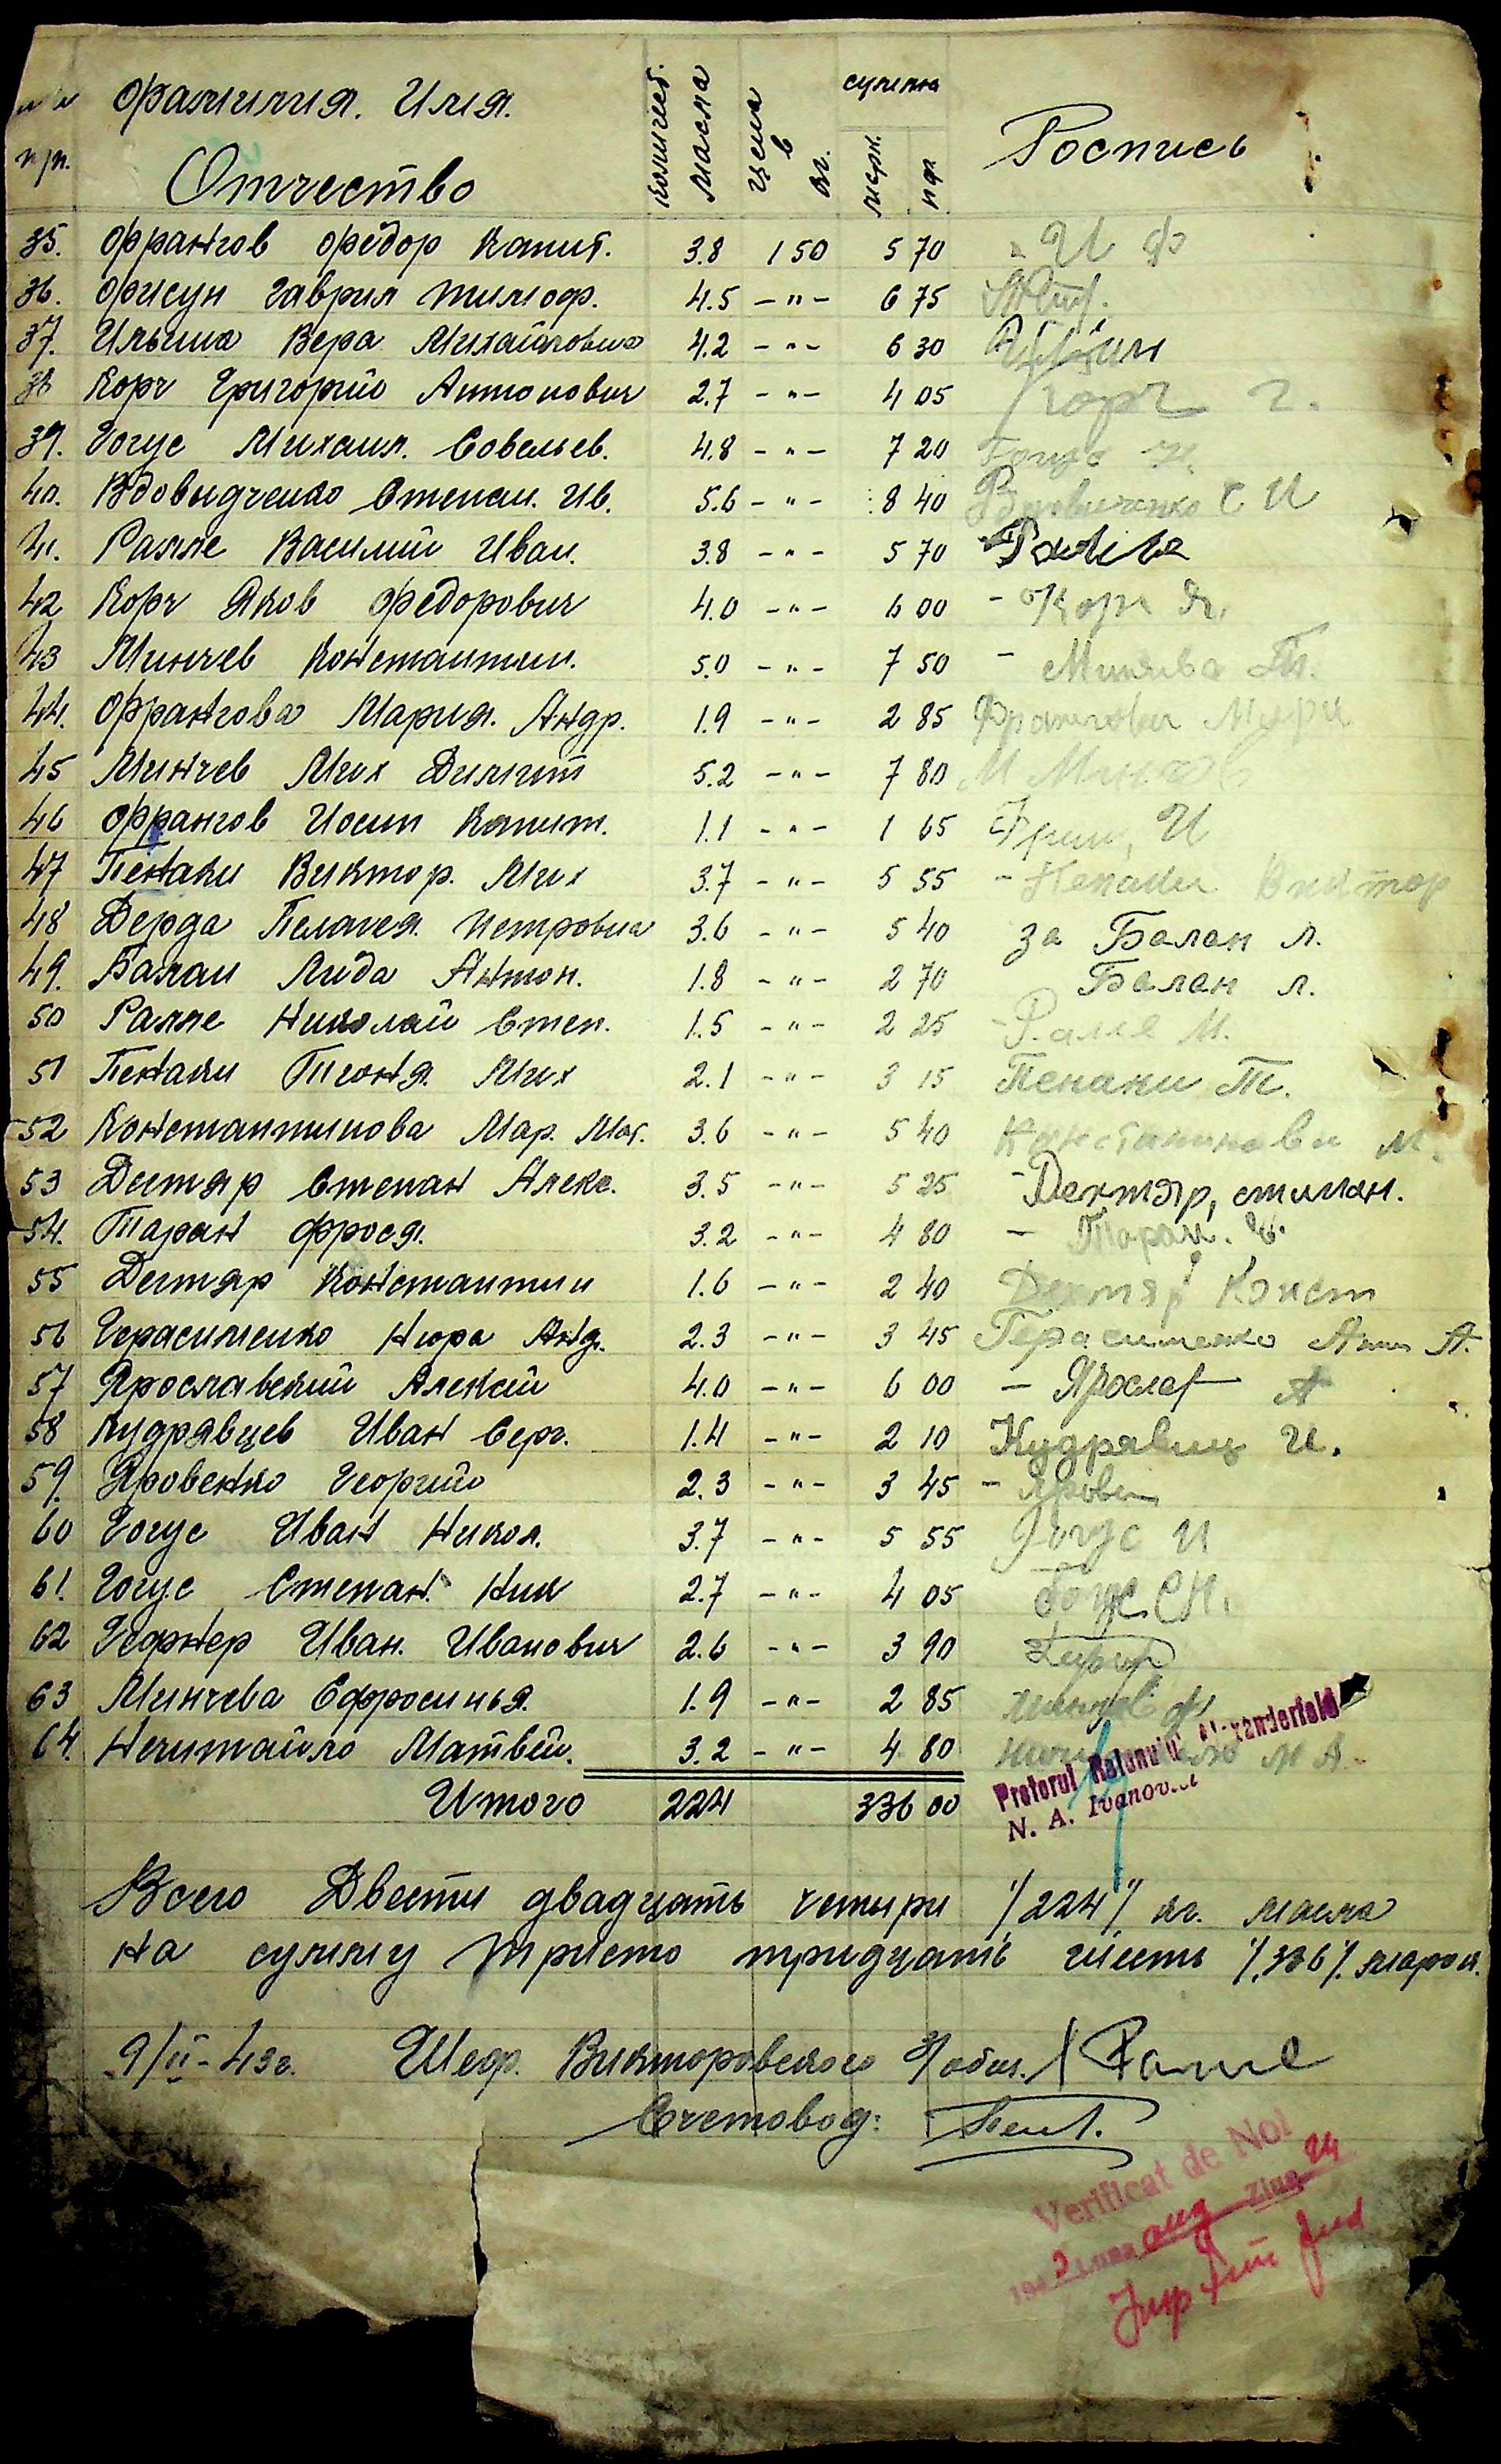 Фамилия. Имя.
Отчество
пр.
количест.
масла
цена
в
кг.
сумма
мрк.
пф
Роспись
35. Франгов Фёдор Капит. 3.8 1 50 5 70 И Ф
36. Фисун Гаврил Тимоф. 4.5 -"- 6 75
37. Ильина Вера Михайловна 4.2 -"- 6 30
38 Корч Григорий Антонович 2.7 -"- 4 05 Корч Г.
39. Гогус Михаил. Совельев. 4.8 -"- 7 20 Гогус
40. Вдовыдченко Степан. Ив. 5.6 -"- 8 40 Вдовиченко С И
41. Ралле Василий Иван. 3.8 -"- 5 70
42 Корч Яков Федорович 4.0 -"- 6 00 - Корч Я.
43 Минчев Константин. 5.0 -"- 7 50 -
44. Франгова Мария. Андр. 1.9 -"- 2 85 Франгова Мари
45 Минчев Мих Дилит 5.2 -"- 7 80 М Минчев
46 Франгов Иосип Капит. 1.1 -"- 1 65 Фран, И
47 Пенаки Виктор. Мих 3.7 -"- 5 55 - Пенаки Виктор
48 Дерда Пелагея. Петровна 3.6 -"- 5 40 за Балан Л.
49. Балан Лида Антон. 1.8 -"- 2 70 Балан Л.
50 Ралле Николай Степ. 1.5 -"- 2 25 - Ралле
51 Пенаки Тоня. Мих 2.1 -"- 3 15 Пенаки Т.
52 Константинова Мар. Мат. 3.6 -"- 5 40 М.
53 Дегтяр Степан Алекс. 3.5 -"- 5 25 - Дехтяр, стипан.
54. Таран Фрося. 3.2 -"- 4 80 - Таран.
55 Дегтяр Константин 1.6 -"- 2 40 Дехтяр Конст
56 Герасименко Нюра Анд. 2.3 -"- 3 45 Герасименко А.
57 Ярославский Алексей 4.0 -"- 6 00 - Ярослав А
58 Кудрявцев Иван Серг. 1.4 -"- 2 10 Кудрявиц И.
59. Яровенко Георгий 2.3 -"- 3 45 - Яровен
60 Гогус Иван Никол. 3.7 -"- 5 55 Гогус И
61. Гогус Степан. Ник 2.7 -"- 4 05 Гогус С Н.
62 Гефнер Иван. Иванович 2.6 -"- 3 90
63 Минчева Ефросинья. 1.9 -"- 2 85
64. Нечитайло Матвей. 3.2 -"- 4 80
Pretorul Raionului Alexanderfeld
N. A. Ivanov
Итого 224 336 00
Всего Двести двадцать четыри /224/ кг. масла
на сумму триста тридцать шесть /336/ марок.
9/II-43г. Шеф. Викторовского общ. Ралле
Счетовод:
Verificat de Noi
194 Luna aug Ziua 24